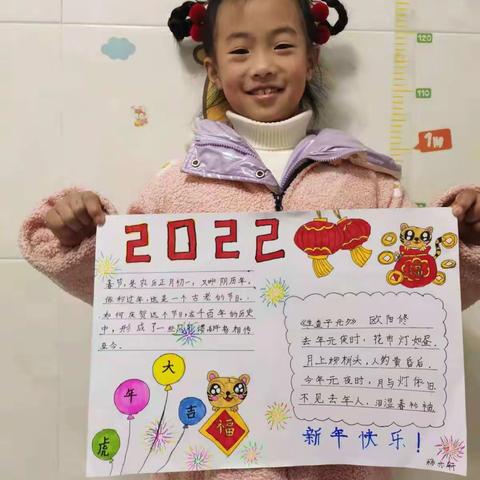 2022
春节,是农历正月初一,又叫阴历年,
俗称过年.也是一个古老的节日.
如何庆贺这个节日,在千百年的历史
中,形成了一些风俗
相传
至今.
大
年
吉
虎
福
《生查子元夕》 欧阳修
去年元夜时,花市灯如昼.
月上柳梢头,人约黄昏后.
今年元夜时,月与灯依旧.
不见去年人,泪湿春衫袖.
新年快乐!
120
110
1m